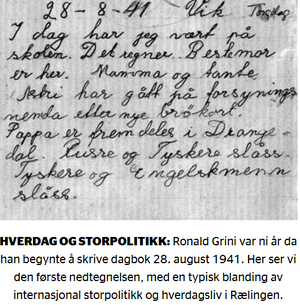 28-8-41 Vik Torsdag
I dag har jeg vært på
skolen. Det regner. Bestemor
er her. Mamma og tante
har gått på forsynings
nemda etter nye brökort.
Pappa er fremdeles i Drange-
dal. Rusre og Tyskere slåss.
Tyskere og Engelskmenn
slåss.
HVERDAG OG STORPOLITIKK: Ronald Grini var ni år da
han begynte å skrive dagbok 28. august 1941. Her ser vi
den første nedtegnelsen, med en typisk blanding av
internasjonal storpolitikk og hverdagsliv i Rælingen.